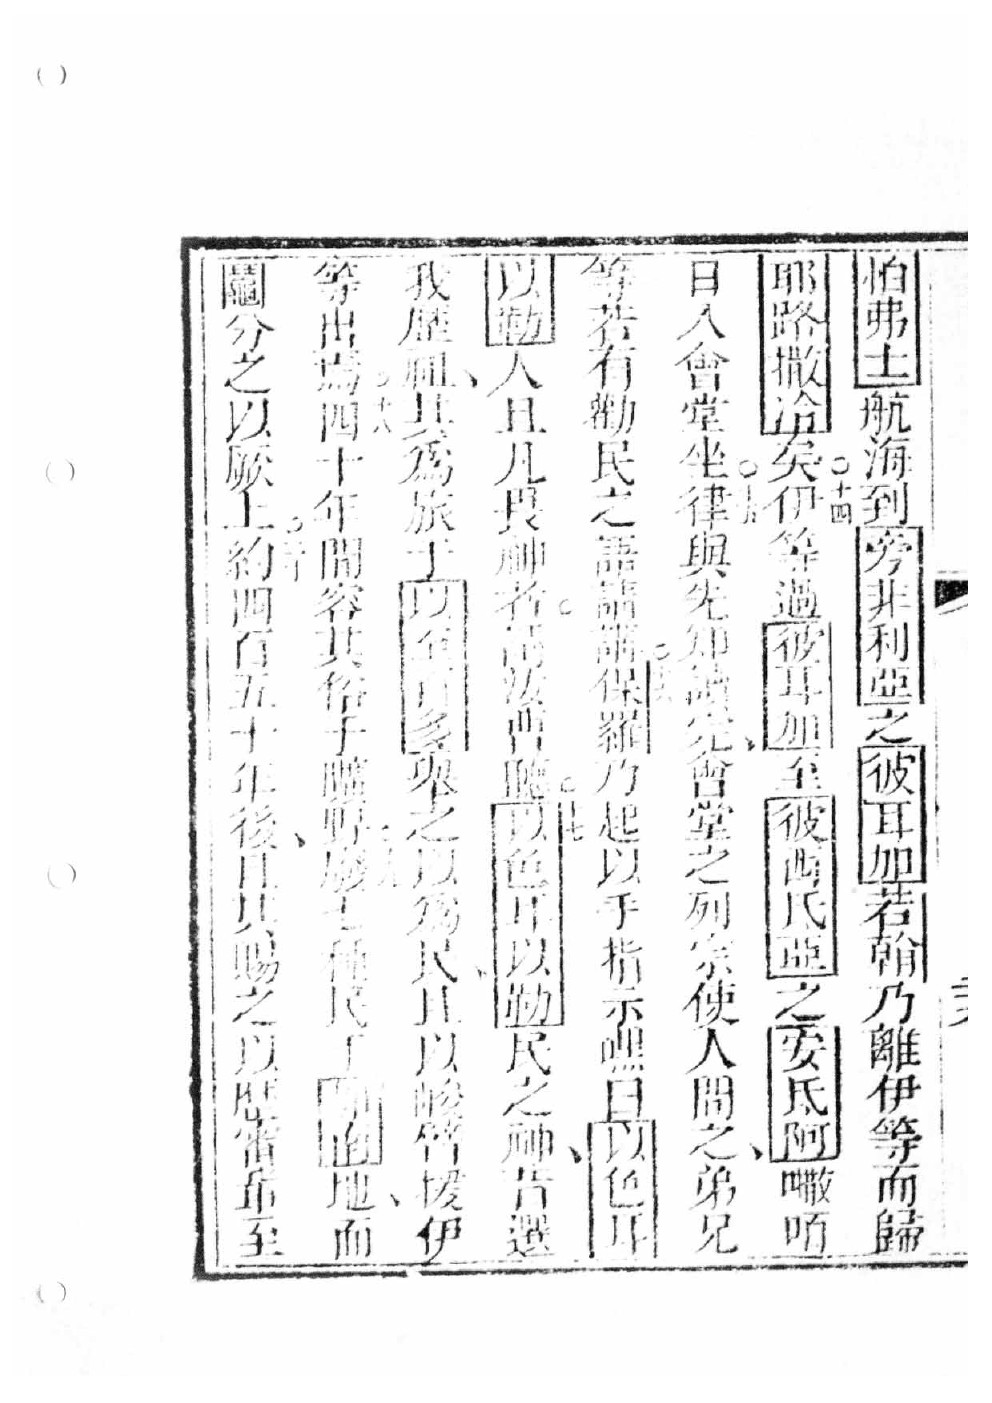 怕弗士航海到旁非利亞之彼耳加若翰乃離伊等而歸
耶路撒冷矣○十四伊等過彼耳加至彼西氏亞之安氐阿嚈咟
日入會堂坐○十五律與先知讀完會堂之列宗使人問之弟兄
等若有勸民之語請講○保羅乃起以手指示嘿曰以色耳
以勒人且凡畏神者○請汝曹聽○十七以色耳以勒民之神昔選
我歷祖其為旅于以至百多舉之以為民且以峻臂援伊
等出焉○十八四十年間容其俗于曠野○廢七種民于加南地而
鬮分之以厥土○二十約四百五十年後且其賜之以歷審耑至